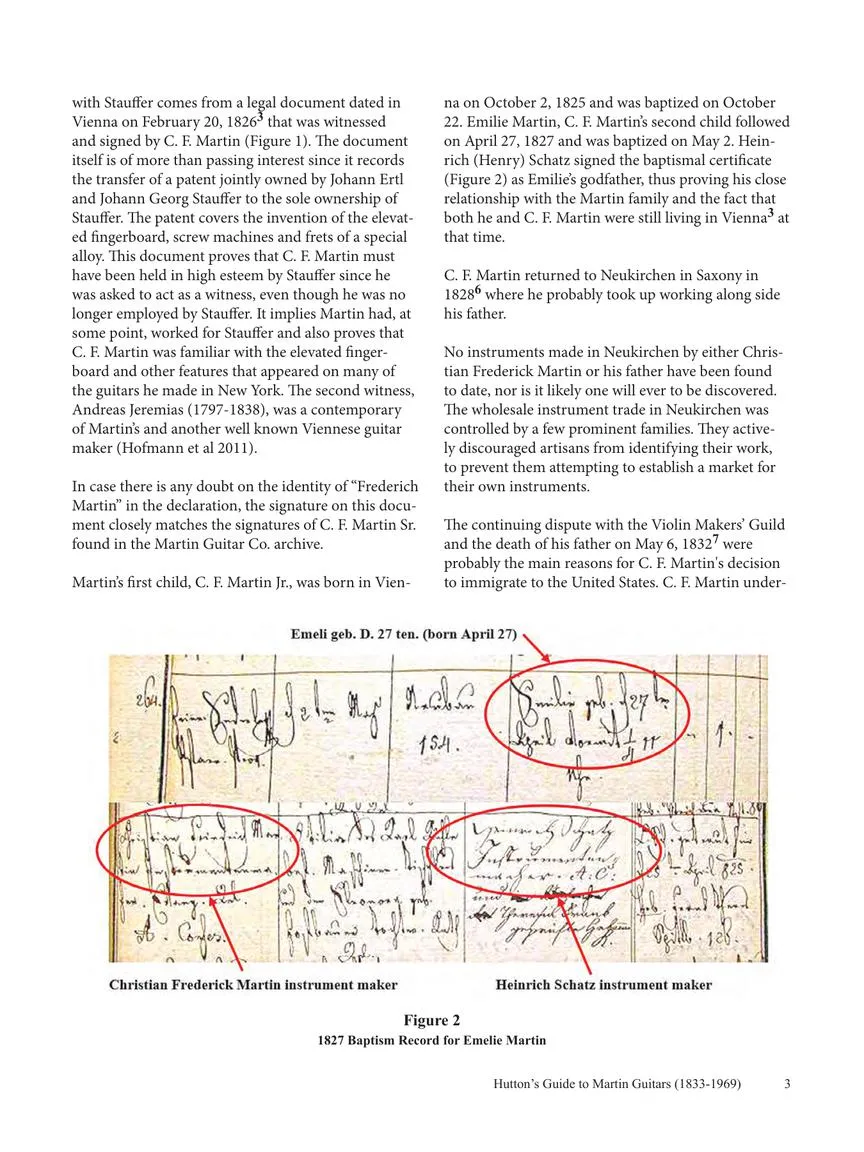 with Stauffer comes from a legal document dated in
Vienna on February 20, 1826³ that was witnessed
and signed by C. F. Martin (Figure 1). The document
itself is of more than passing interest since it records
the transfer of a patent jointly owned by Johann Ertl
and Johann Georg Stauffer to the sole ownership of
Stauffer. The patent covers the invention of the elevat-
ed fingerboard, screw machines and frets of a special
alloy. This document proves that C. F. Martin must
have been held in high esteem by Stauffer since he
was asked to act as a witness, even though he was no
longer employed by Stauffer. It implies Martin had, at
some point, worked for Stauffer and also proves that
C. F. Martin was familiar with the elevated finger-
board and other features that appeared on many of
the guitars he made in New York. The second witness,
Andreas Jeremias (1797-1838), was a contemporary
of Martin’s and another well known Viennese guitar
maker (Hofmann et al 2011).
In case there is any doubt on the identity of “Frederich
Martin” in the declaration, the signature on this docu-
ment closely matches the signatures of C. F. Martin Sr.
found in the Martin Guitar Co. archive.
Martin’s first child, C. F. Martin Jr., was born in Vien-
na on October 2, 1825 and was baptized on October
22. Emilie Martin, C. F. Martin’s second child followed
on April 27, 1827 and was baptized on May 2. Hein-
rich (Henry) Schatz signed the baptismal certificate
(Figure 2) as Emilie’s godfather, thus proving his close
relationship with the Martin family and the fact that
both he and C. F. Martin were still living in Vienna³ at
that time.
C. F. Martin returned to Neukirchen in Saxony in
1828⁶ where he probably took up working along side
his father.
No instruments made in Neukirchen by either Chris-
tian Frederick Martin or his father have been found
to date, nor is it likely one will ever to be discovered.
The wholesale instrument trade in Neukirchen was
controlled by a few prominent families. They active-
ly discouraged artisans from identifying their work,
to prevent them attempting to establish a market for
their own instruments.
The continuing dispute with the Violin Makers’ Guild
and the death of his father on May 6, 1832⁷ were
probably the main reasons for C. F. Martin's decision
to immigrate to the United States. C. F. Martin under-
Emeli geb. D. 27 ten. (born April 27)
264.
Neubau
154.
Emilie geb. d 27 ten
April
Christian Friedrich Mar
Heinrich Schatz
Instrumenten
macher. A. C.
und
A. Confes.
Christian Frederick Martin instrument maker
Heinrich Schatz instrument maker
Figure 2
1827 Baptism Record for Emelie Martin
Hutton’s Guide to Martin Guitars (1833-1969) 3